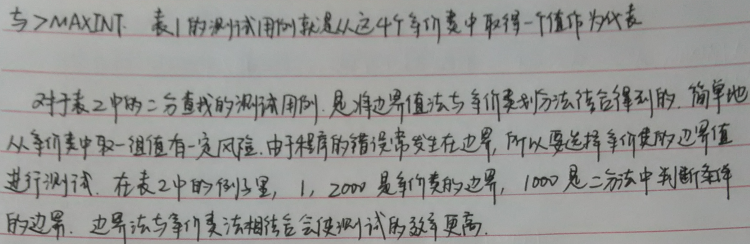 与>MAXINT. 表1的测试用例就是从这4个等价类中取得一个值作为代表
对于表2中的二分查找的测试用例. 是将边界值法与等价类划分法结合得到的. 简单地
从等价类中取一组值有一定风险. 由于程序的错误常发生在边界, 所以要选择等价类的边界值
进行测试. 在表2中的例子里, 1, 2000 是等价类的边界, 1000 是二分法中判断条件
的边界. 边界法与等价类法相结合会使测试的效率更高.